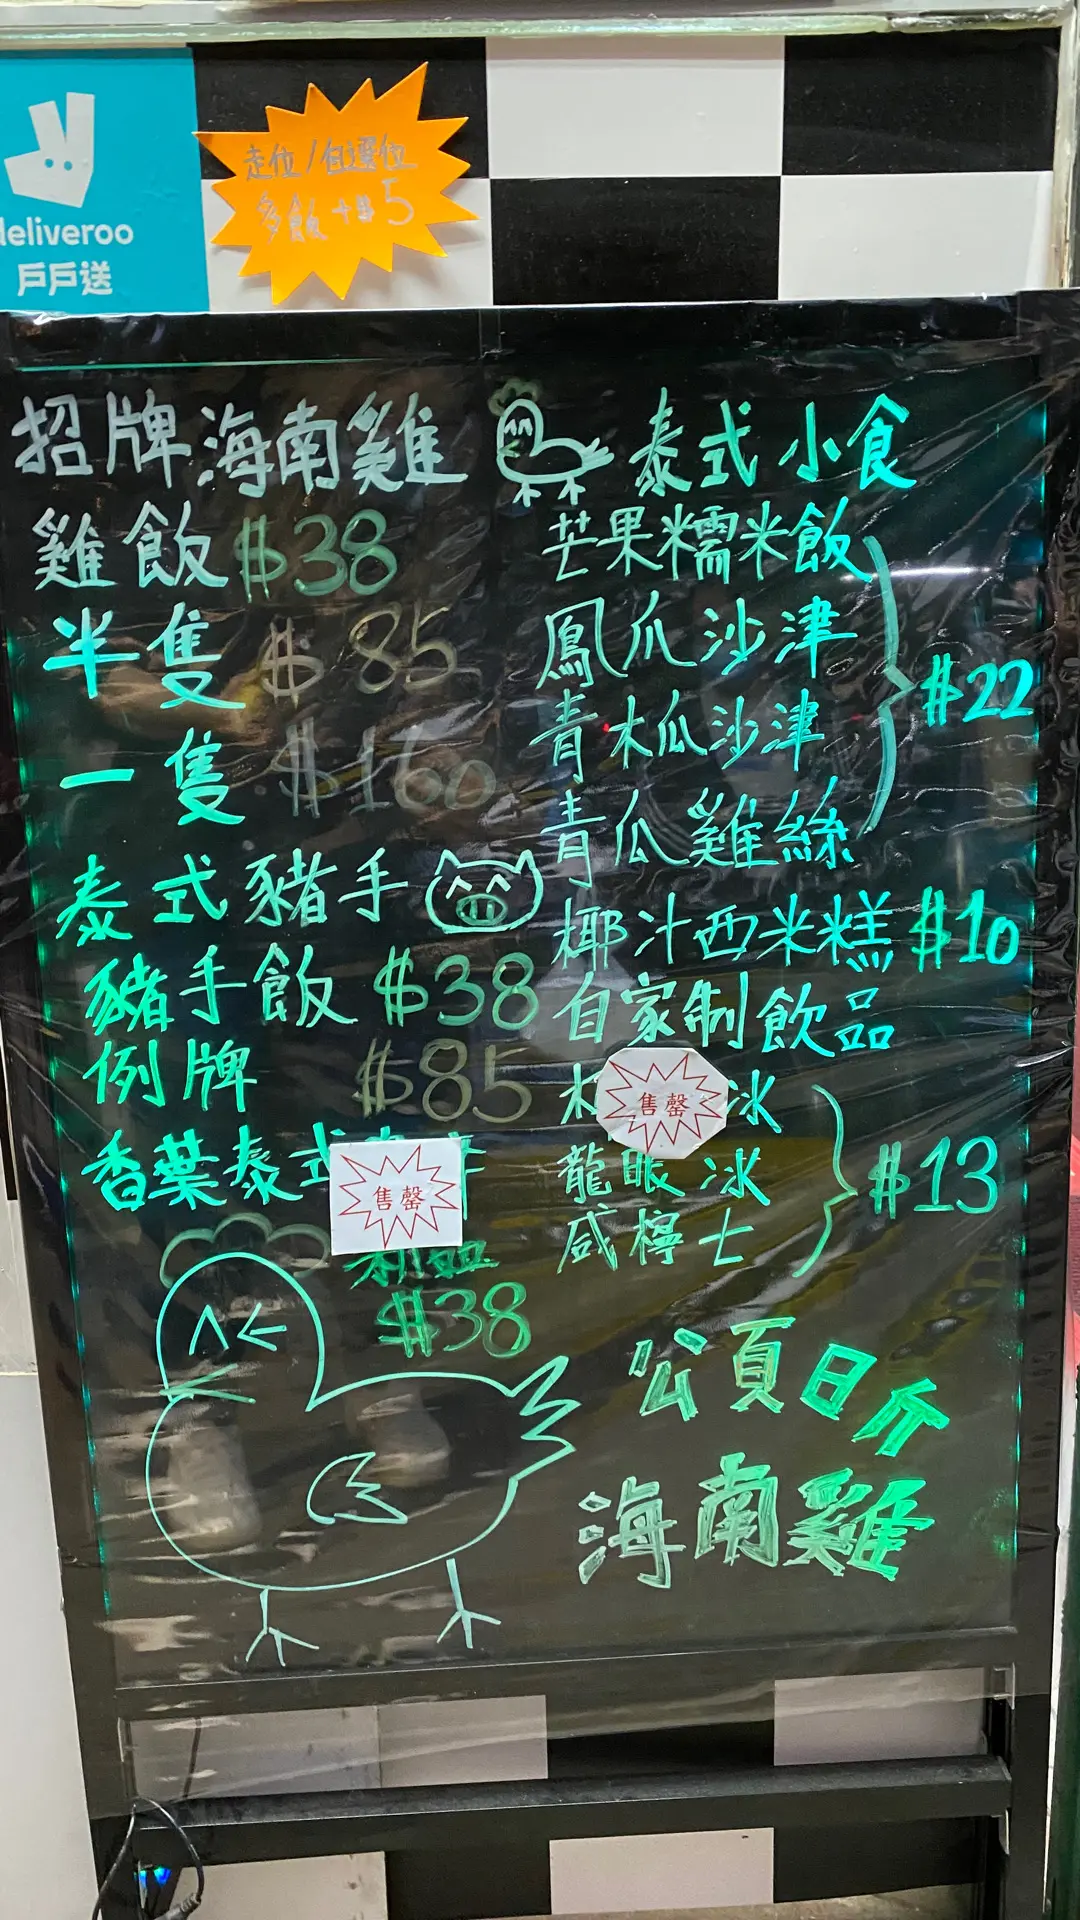 deliveroo
戶戶送
走位/自選位
多飯+$5
招牌海南雞
雞飯 $38
半隻 $85
一隻 $160
泰式豬手
豬手飯 $38
例牌 $85
香葉泰式
售罄
$38
泰式小食
芒果糯米飯
鳳爪沙津
青木瓜沙津
青瓜雞絲
$22
椰汁西米糕 $10
自家制飲品
售罄
冰
龍眼冰
咸檸士
$13
海南雞